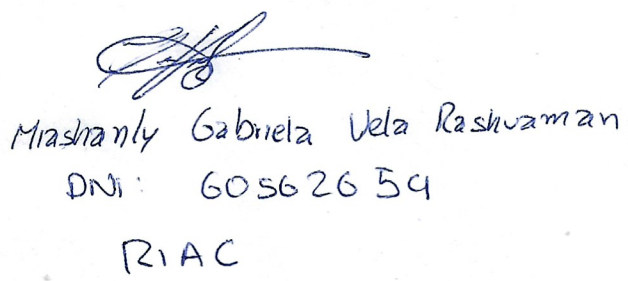 Miashanly Gabriela Vela Rashuaman
DNi: 60562654
RIAC